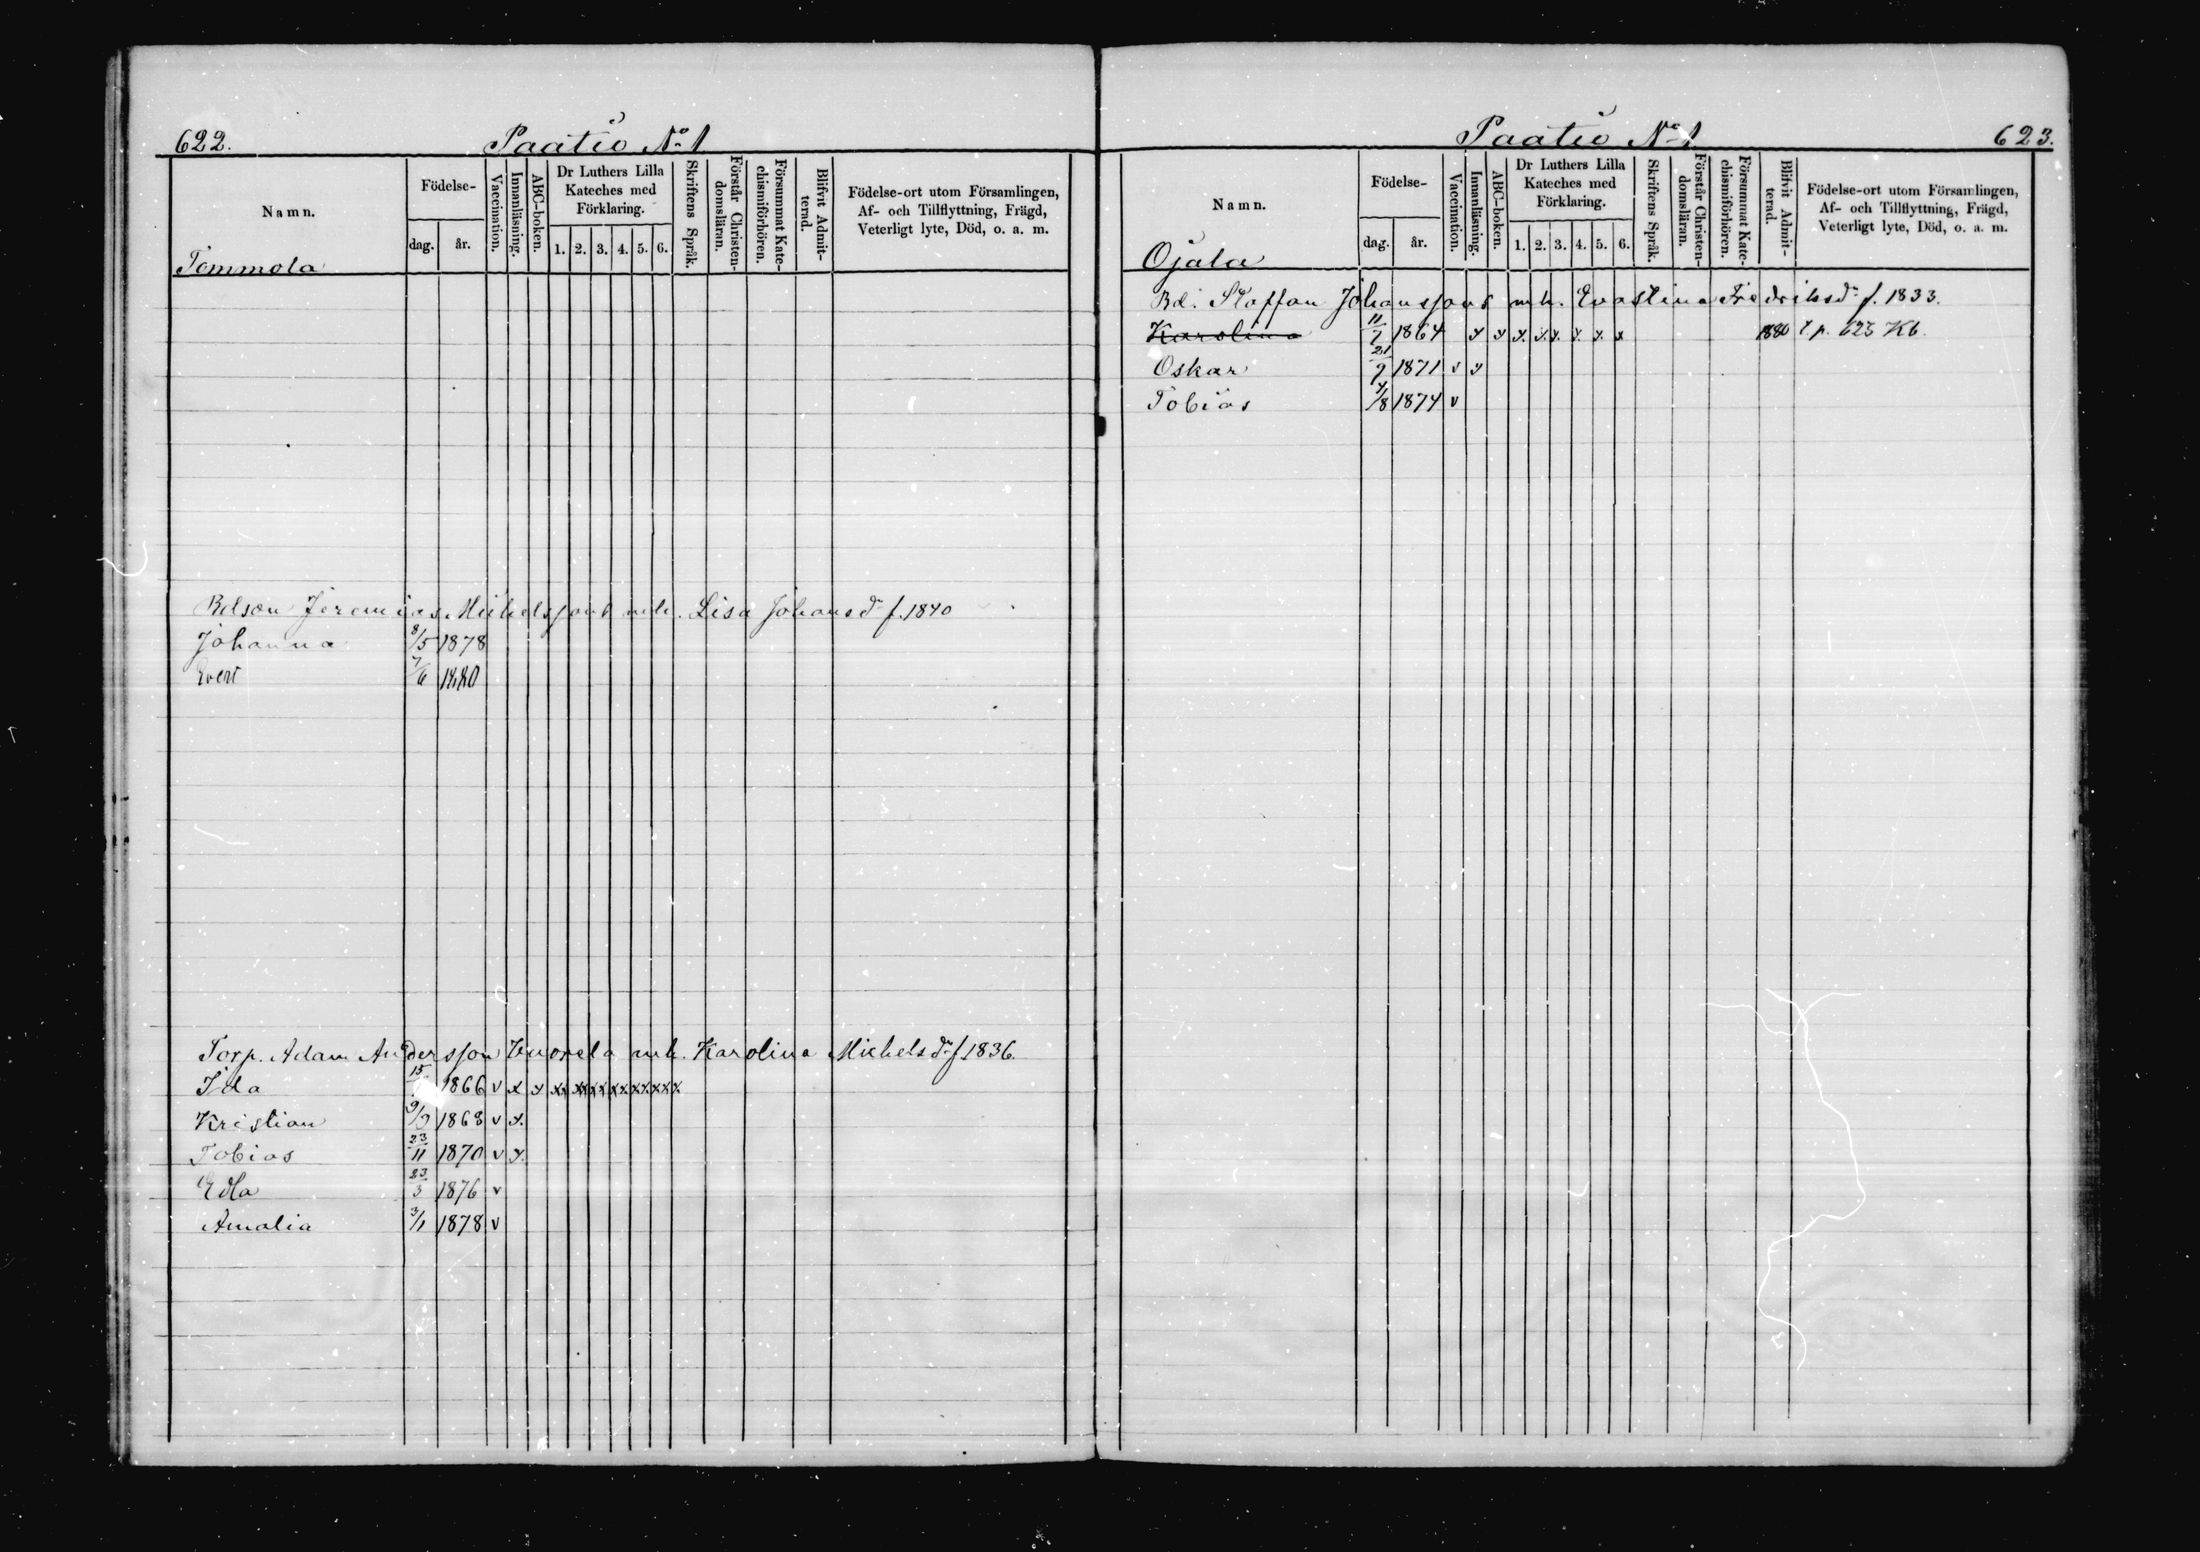 622. Paatio No 1
Namn. Födelse- dag. år. Vaccination. Innanläsning. ABC-boken. Dr Luthers Lilla Kateches med Förklaring. 1. 2. 3. 4. 5. 6. Skriftens Språk. Förstår Christen-domsläran. Försummat Kate-chismiförhören. Blifvit Admit-terad. Födelse-ort utom Församlingen, Af- och Tillflyttning, Frägd, Veterligt lyte, Död, o. a. m.
Tommola
Bdson Jeremias Michelssons mh. Lisa Johansdr f. 1840
Johanna 8/5 1878
Evert 7/6 1880
Torp. Adam Andersson Knorela mh. Karolina Michelsdr f. 1836.
Ida 15 1866 v x x xx xx xx xx xx xxx
Kristian 9/9 1868 v x.
Tobias 23/11 1870 v x.
Edla 23/3 1876 v
Amalia 3/1 1878 v
Paatio No 1 623.
Namn. Födelse- dag. år. Vaccination. Innanläsning. ABC-boken. Dr Luthers Lilla Kateches med Förklaring. 1. 2. 3. 4. 5. 6. Skriftens Språk. Förstår Christen-domsläran. Försummat Kate-chismiförhören. Blifvit Admit-terad. Födelse-ort utom Församlingen, Af- och Tillflyttning, Frägd, Veterligt lyte, Död, o. a. m.
Ojala
Bd. Staffan Johanssons mh. Evastina Fredriksdr f. 1833.
Karolina 11/7 1864 x x x. x. x. x. x. x 1880 t. p. 623 Kb.
Oskar 21/9 1871 v x
Tobias 4/8 1874 v